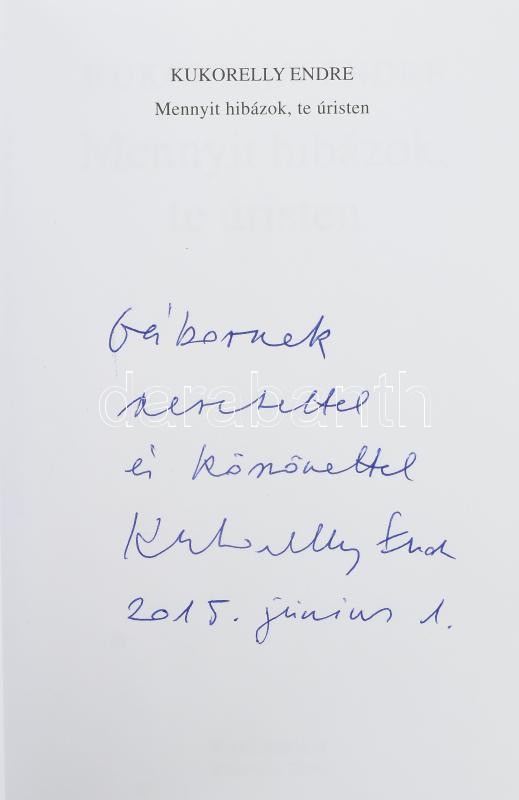 KUKORELLY ENDRE
Mennyit hibázok, te úristen
Gábornak
szeretettel
darabanth
és köszönettel
Kukorelly Endre
2015. június 1.